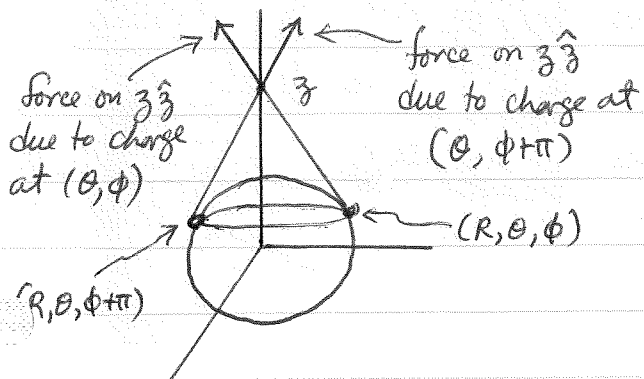 force on z ẑ
due to charge
at (θ, φ)
z
force on z ẑ
due to charge at
(θ, φ+π)
(R, θ, φ)
(R, θ, φ+π)